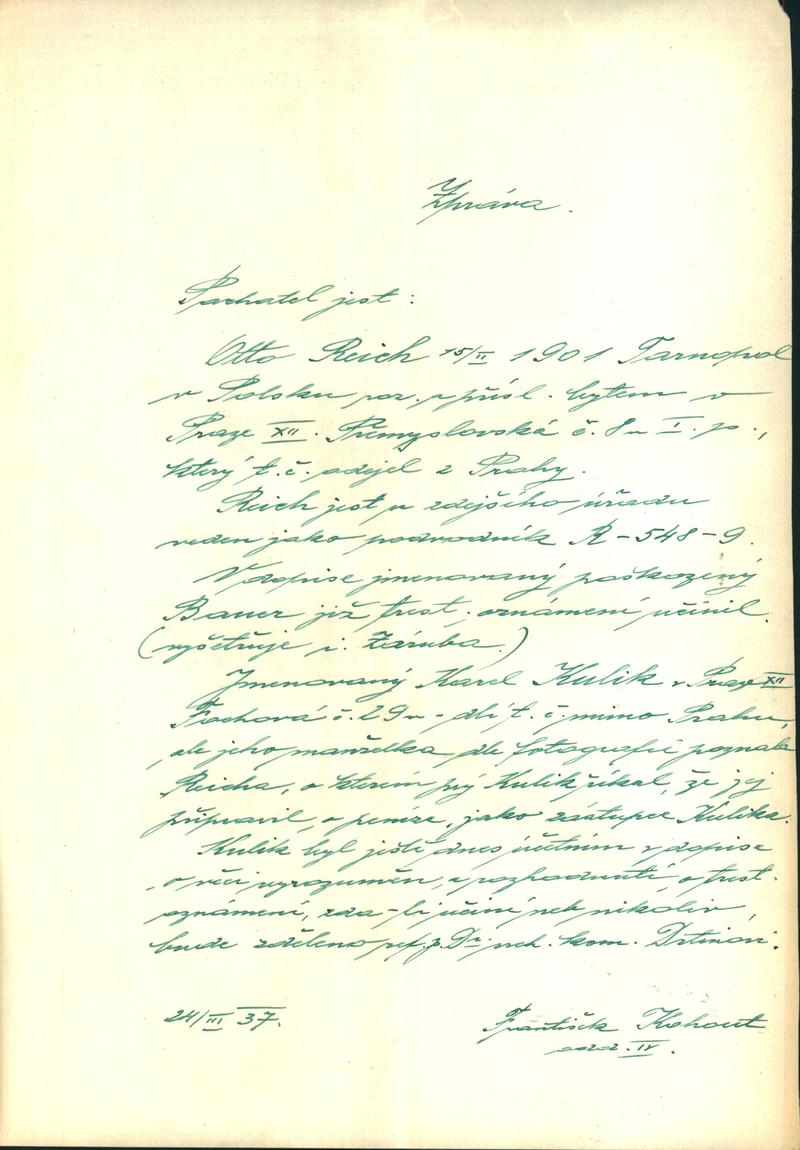 Zpráva.
Pachatel jest :
Otto Reich 15/II 1901 Tarnopol
v Polsku nar. a přísl. bytem v
Praze XII. Přemyslovská č. 8 u I. p.,
který t. č. odejel z Prahy.
Reich jest u zdejšího úřadu
veden jako podvodník R-548-9.
V dopise jmenovaný poškozený
Bauer již trest. oznámení učinil.
(vyšetřuje i. Záruba.)
Jmenovaný Karel Kulik v Praze XII
Fochová č. 29 u - dlí t. č. mimo Prahu,
ale jeho manželka dle fotografie poznala
Reicha, o kterém prý Kulik říkal, že jej
připravil o peníze, jako zástupce Kulika.
Kulik byl ještě dnes v dopise
o věci vyrozuměn, a rozhodnutí o trest.
oznámení, zda-li učiní neb nikoliv,
bude sděleno ref. p. Dr. kom. Drtinovi.
24/III 37.
František Kohout
odd. IV.